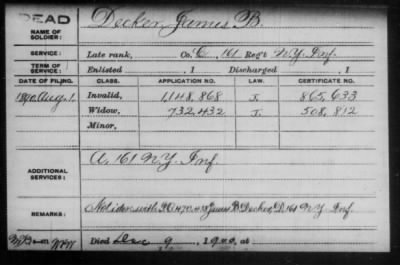 DEAD
NAME OF SOLDIER: Decker, James B
SERVICE: Late rank, Co. C, 161 Reg't N.Y. Inf.
TERM OF SERVICE: Enlisted , 1 Discharged , 1
DATE OF FILING. CLASS. APPLICATION NO. LAW. CERTIFICATE NO.
1890 Aug. 1, Invalid, 1,148,868 J. 865,633
Widow, 732,432 J. 508,812
Minor,
ADDITIONAL SERVICES: A, 161 N.Y. Inf.
REMARKS: Not iden with James B. Decker, D, 161 N.Y. Inf.
Died Dec 9, 1900, at